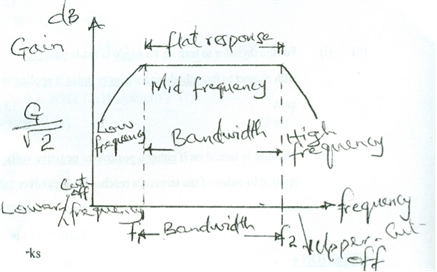 dB
Gain
flat response
Mid frequency
G
√2
Low frequency
Bandwidth
High frequency
Lower Cut-off frequency
frequency
f1
Bandwidth
f2
Upper Cut-off
-ks